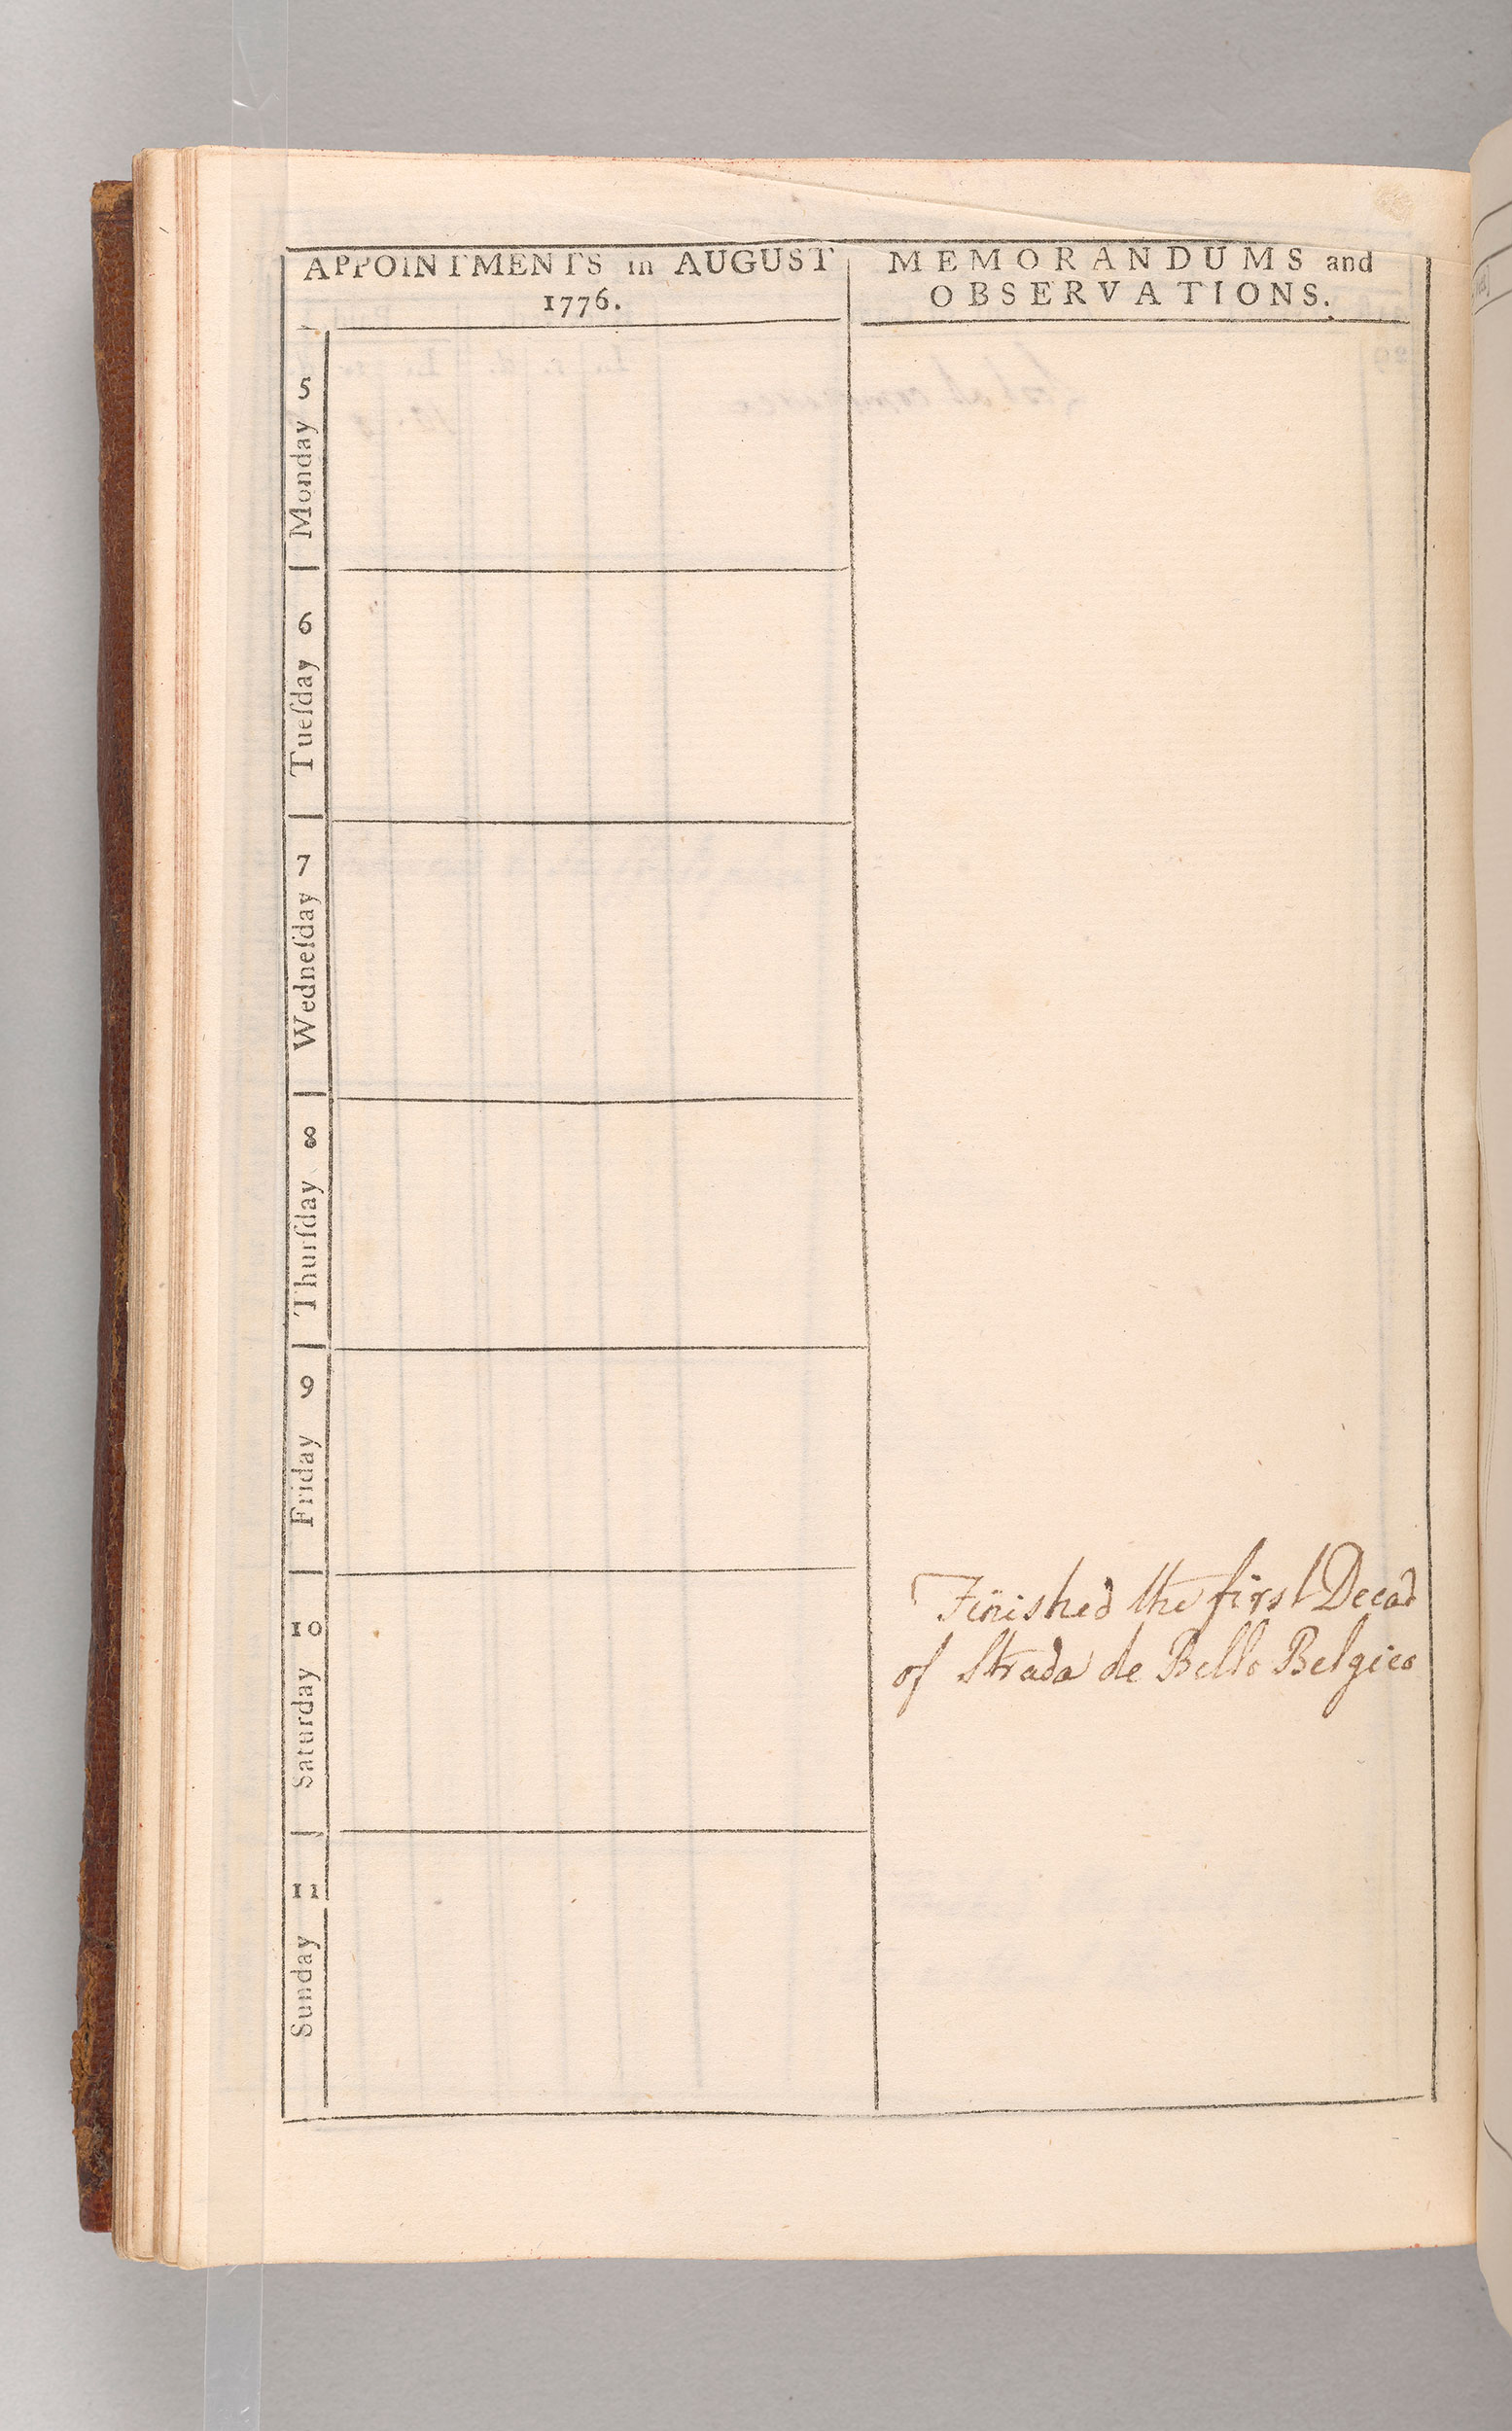 APPOINTMENTS in AUGUST
1776.
MEMORANDUMS and
OBSERVATIONS.
Monday 5
Tueſday 6
Wedneſday 7
Thurſday 8
Friday 9
Saturday 10
Finished the first Decad
of Strada de Bello Belgico
Sunday 11